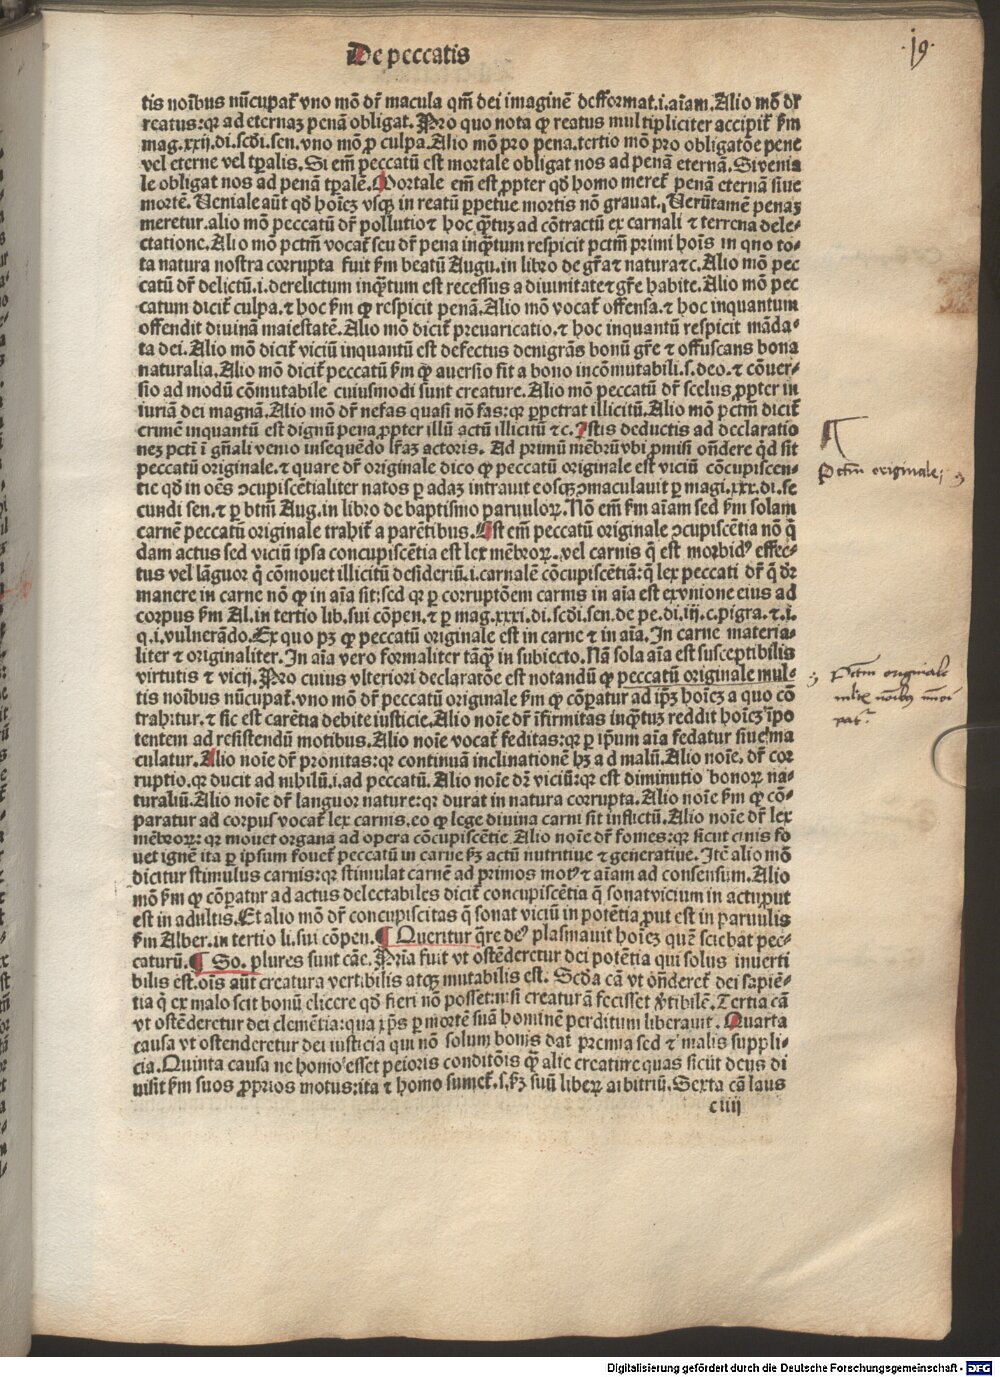 De peccatis
.19.
tis noībus nūcupat̄ vno mō dr̄ macula qm̄ dei imaginē defformat.i.aīam.Alio mō dr̄
reatus:qꝛ ad eternaꝫ penā obligat.Pro quo nota ꝙ reatus multipliciter accipit̄ ẜm
mag.xxij.di.scd̄i.sen.vno mō ꝓ culpa.Alio mō pro pena.tertio mō pro obligatōe pene
vel eterne vel tp̄alis.Si em̄ peccatū est mortale obligat nos ad penā eternā.Si venia
le obligat nos ad penā tp̄alē.Mortale em̄ est ꝓpter qd̄ homo meret̄ penā eternā siue
mortē.Veniale aūt qd̄ hoīeꝫ vsqꝫ in reatū ꝑpetue mortis nō grauat.Verūtamē penaꝫ
meretur.alio mō peccatū dr̄ pollutio ⁊ hoc q̄ntuꝫ ad cōtractū ex carnali ⁊ terrena dele-
ctatione.Alio mō pctm̄ vocat̄ seu dr̄ pena inq̄ntum respicit pctm̄ primi hoīs in quo to-
ta natura nostra corrupta fuit ẜm beatū Augu.in libro de gr̄a ⁊ natura ⁊c.Alio mō pec
catū dr̄ delictū.i.derelictum inq̄ntum est recessus a diuinitate ⁊ gr̄e habite.Alio mō pec
catum dicit̄ culpa.⁊ hoc ẜm ꝙ respicit penā.Alio mō vocat̄ offensa.⁊ hoc inquantum
offendit diuinā maiestatē.Alio mō dicit̄ preuaricatio.⁊ hoc inquantū respicit māda-
ta dei.Alio mō dicit̄ viciū inquantū est defectus denigrās bonū gr̄e ⁊ offuscans bona
naturalia.Alio mō dicit̄ peccatū ẜm ꝙ auersio fit a bono incōmutabili.s.deo.⁊ cōuer-
sio ad modū cōmutabile cuiusmodi sunt creature.Alio mō peccatū dr̄ scelus ꝓpter in
iuriā dei magnā.Alio mō dr̄ nefas quasi nō fas:qꝛ ꝑpetrat illicitū.Alio mō pctm̄ dicit̄
crimē inquantū est dignū pena ꝓpter illū actū illicitū ⁊c.Istis deductis ad declaratio
neꝫ pcti ī gn̄ali venio insequēdo lr̄aꝫ actoris. Ad primū mēbrū vbi ꝓmisi on̄dere q̇d sit
peccatū originale.⁊ quare dr̄ originale dico ꝙ peccatū originale est viciū cōcupiscen-
tie qd̄ in oēs ↄcupiscētialiter natos ꝑ adaꝫ intrauit eosqꝫ ↄmaculauit ꝑ magi.xxx.di.se
cundi sen.⁊ ꝑ btm̄ Aug.in libro de baptismo paruuloꝝ.Nō em̄ ẜm aīam sed ẜm solam
carnē peccatū originale trahit̄ a parētibus.Est em̄ peccatū originale ↄcupiscētia nō q̄
dam actus sed viciū ipsa concupiscētia est lex mēbroꝝ.vel carnis q̄ est morbidꝰ effec-
tus vel lāguor q̄ cōmouet illicitū desideriū.i.carnalē cōcupiscētiā:q̄ lex peccati dr̄ q̄ dr̄
manere in carne nō ꝙ in aīa sit:sed qꝛ ꝑ corruptōem carnis in aīa est ex vnione eius ad
corpus ẜm Al.in tertio lib.sui cōpen.⁊ ꝑ mag.xxxi.di.scd̄i.sen.de pe.di.iij.c.pigra.⁊.i.
q.i.vulnerādo.Ex quo pꝫ ꝙ peccatū originale est in carne ⁊ in aīa.In carne materia-
liter ⁊ originaliter.In aīa vero formaliter tāq̄ in subiecto.Nā sola aīa est susceptibilis
virtutis ⁊ vicij.Pro cuius vlteriori declaratōe est notandū ꝙ peccatū originale mul-
tis noībus nūcupat.vno mō dr̄ peccatū originale ẜm ꝙ cōparat̄ ad ip̄ꝫ hoīeꝫ a quo cō
trahitur.⁊ sic est carētia debite iusticie.Alio noīe dr̄ īfirmitas inq̄ntuꝫ reddit hoīeꝫ īpo
tentem ad resistendū motibus.Alio noīe vocat̄ feditas:qꝛ ꝑ ip̄um aīa fedatur siue ma
culatur.Alio noīe dr̄ pronitas:qꝛ continuā inclinationē hꝫ ad malū.Alio noīe dr̄ cor
ruptio.qꝛ ducit ad nihilū.i.ad peccatū.Alio noīe dr̄ viciū:qꝛ est diminutio bonoꝝ na-
turaliū.Alio noīe dr̄ languor nature:qꝛ durat in natura corrupta.Alio noīe ẜm ꝙ cō-
paratur ad corpus vocat̄ lex carnis.eo ꝙ lege diuina carni sit inflictū.Alio noīe dr̄ lex
mēbroꝝ: qꝛ mouet organa ad opera cōcupiscētie Alio noīe dr̄ fomes:qꝛ sicut cinis fo
uet ignē ita ꝑ ipsum fouet̄ peccatū in carne ẜꝫ actū nutritiue ⁊ generatiue.Itē alio mō
dicitur stimulus carnis:qꝛ stimulat carnē ad primos motꝰ ⁊ aīam ad consensum.Alio
mō ẜm ꝙ cōparatur ad actus delectabiles dicit̄ concupiscētia q̄ sonat vicium in actu ꝓut
est in adultis.Et alio mō dr̄ concupiscitas q̄ sonat viciū in potētia ꝓut est in paruulis
ẜm Alber.in tertio li.sui cōpen.¶ Queritur q̄re deꝰ plasmauit hoīeꝫ quē sciebat pec-
caturū.¶ So. plures sunt cāe.Pria fuit vt ostēderetur dei potētia qui solus inuerti
bilis est.oīs aūt creatura vertibilis atqꝫ mutabilis est. Scd̄a cā vt on̄deret̄ dei sapiē-
tia q̄ ex malo scit bonū elicere qd̄ fieri nō posset:nisi creaturā fecisset v̓tibilē.Tertia cā
vt ostēderetur dei clemētia:qua xp̄s ꝑ mortē suā hominē perditum liberauit.Quarta
causa vt ostenderetur dei iusticia qui nō solum bonis dat premia sed ⁊ malis suppli-
cia.Quinta causa ne homo esset peioris conditōis q̄ alie creature quas sicut deus di
uisit ẜm suos ꝓprios motus:ita ⁊ homo sumet̄.s.ẜꝫ suū liberꝝ arbitriū.Sexta cā laus
ciiij
Pctm̄ originale
Pctm̄ originale
Digitalisierung gefördert durch die Deutsche Forschungsgemeinschaft - DFG